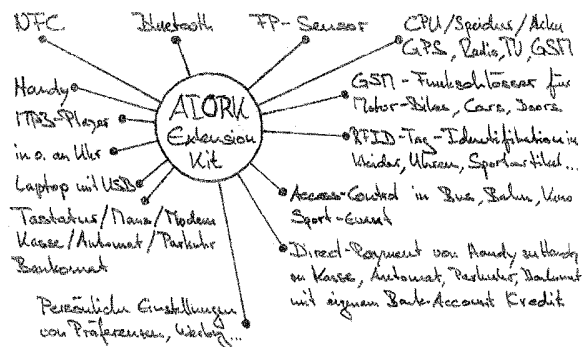 NFC
Bluetooth
FP-Sensor
CPU/Speicher/Akku
GPS, Radio, TV, GSM
GSM-Funkschlösser für
Motor-Bikes, Cars, Doors
RFID-Tag-Identifikation in
Kleider, Uhren, Sportartikel...
Access-Control in Bus, Bahn, Kino
Sport-Event
Direct-Payment von Handy zu Handy
an Kasse, Automat, Parkuhr, Bankomat
mit eigenem Bank-Account Kredit
Handy
MP3-Player
in o. an Uhr
Laptop mit USB
Tastatur/Maus/Modem
Kasse/Automat/Parkuhr
Bankomat
Persönliche Einstellungen
von Präferenzen, Werbg...
Extension
Kit